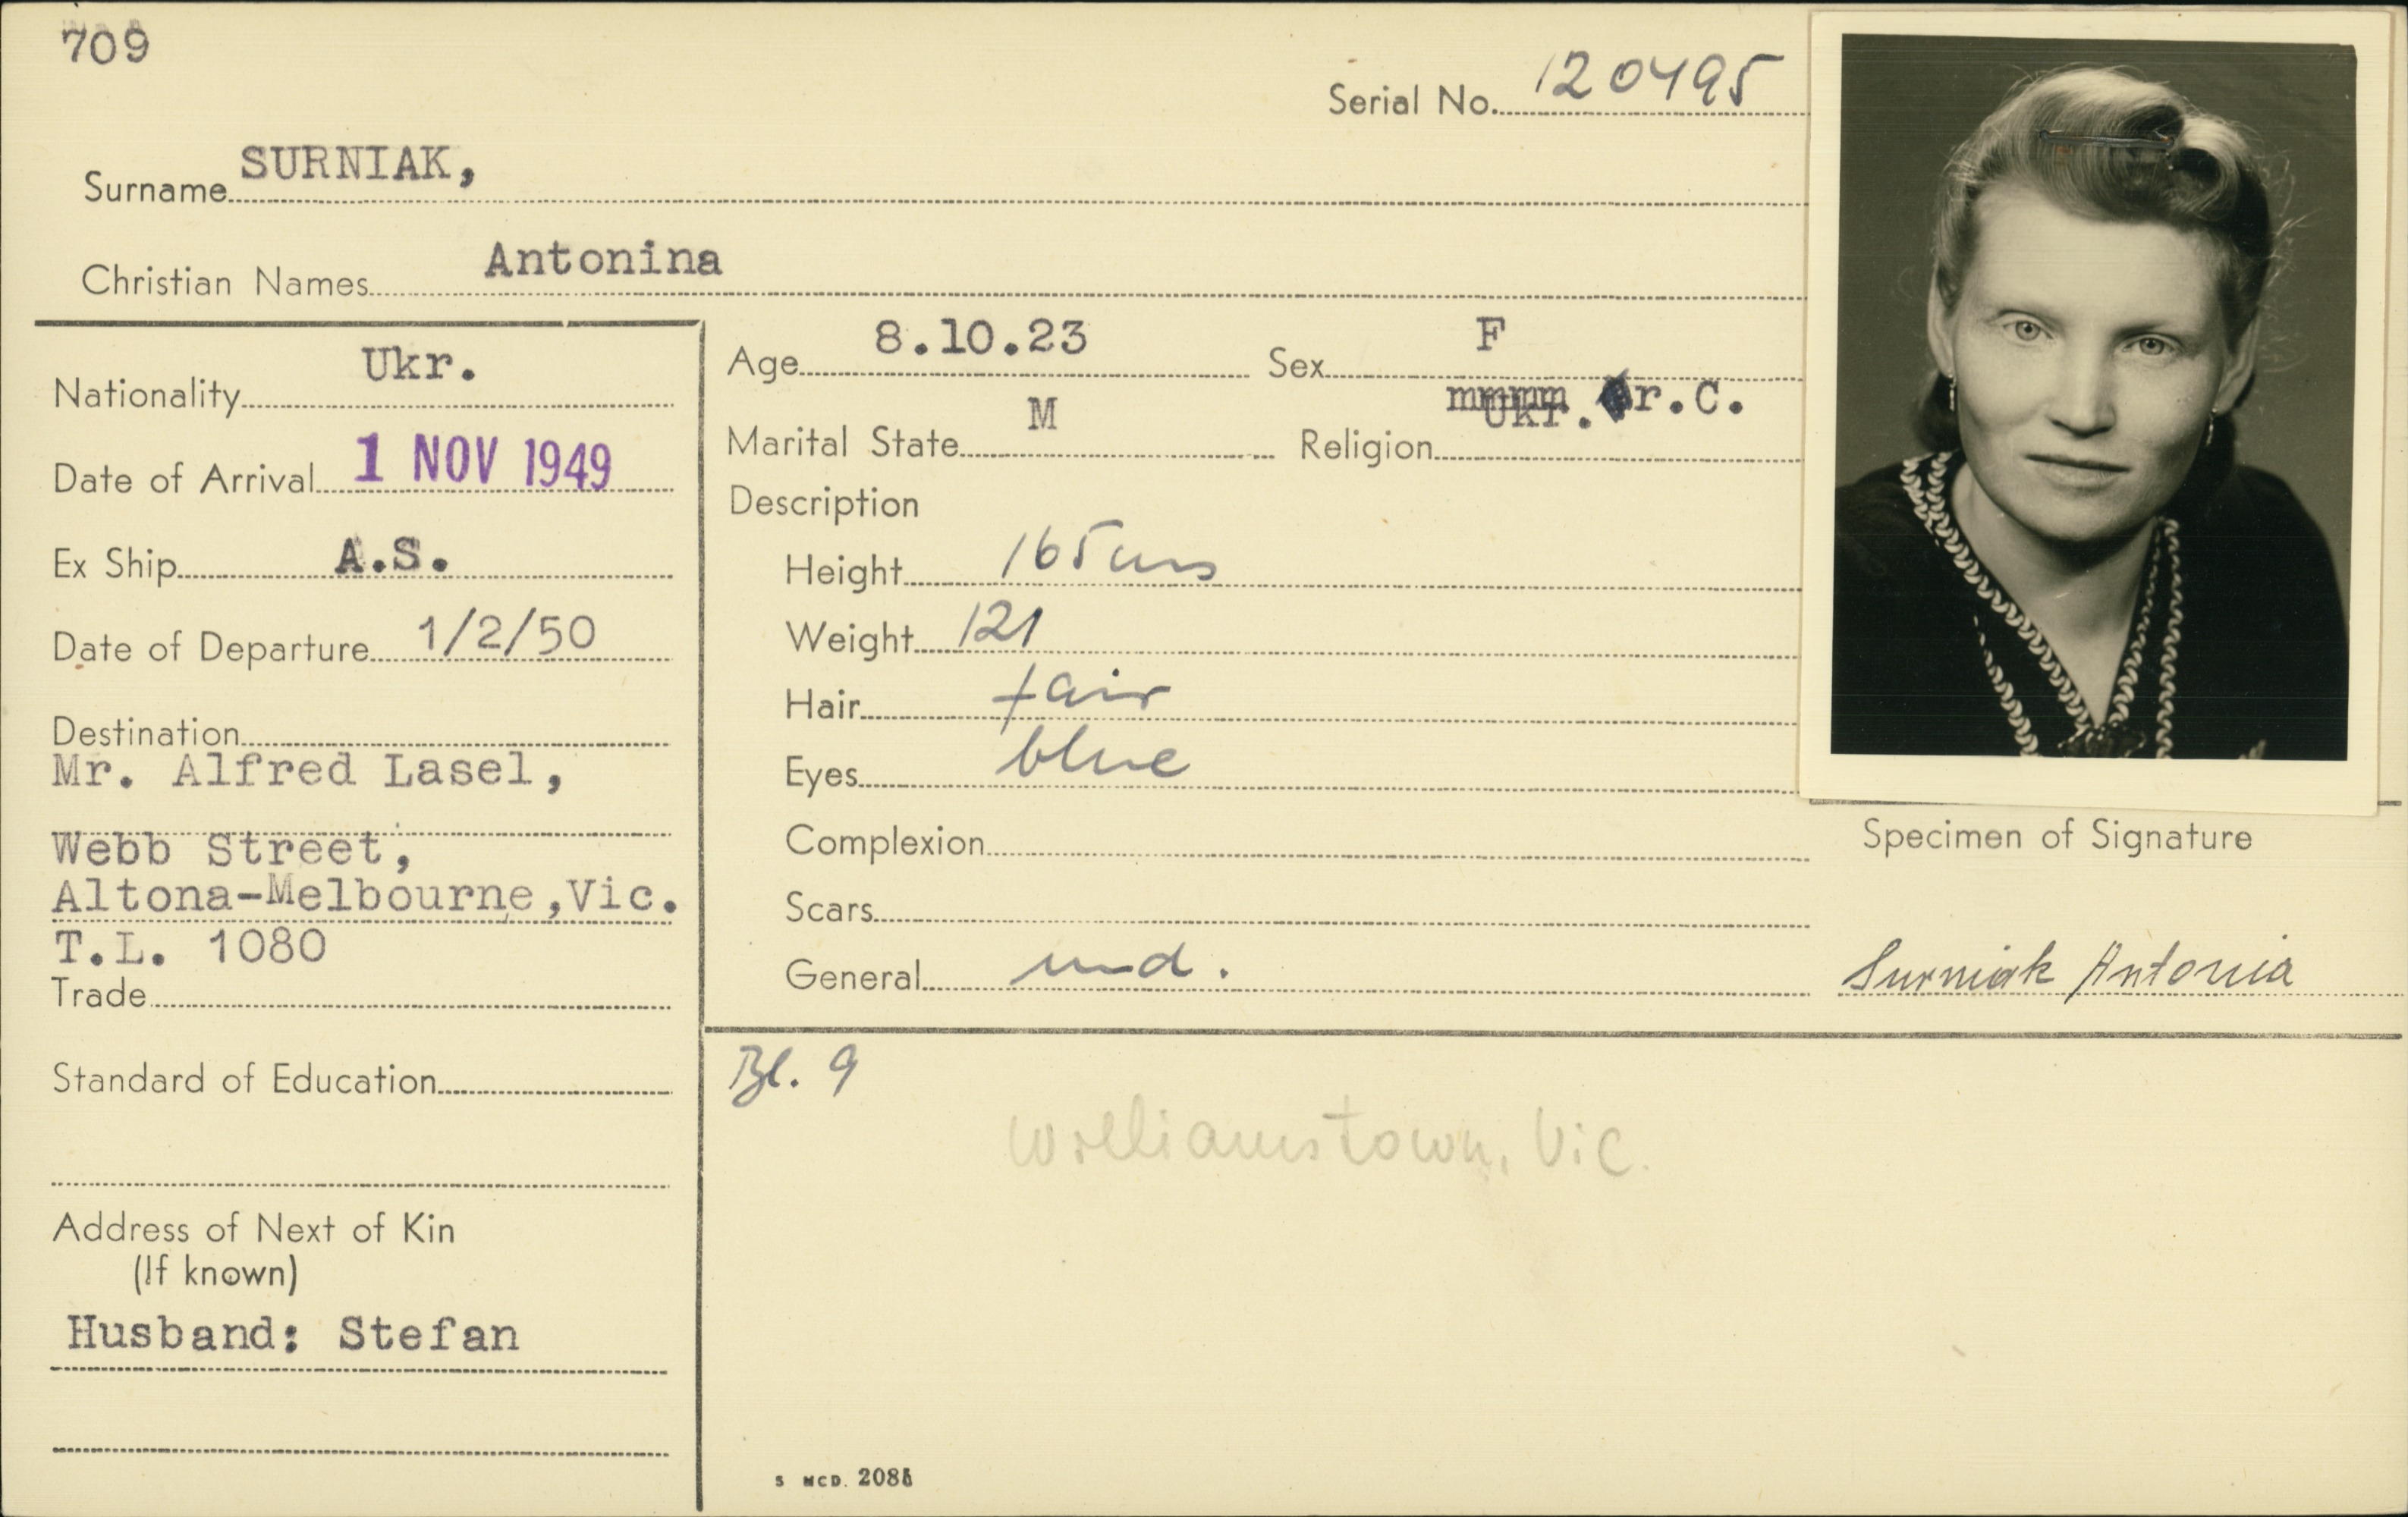 709
Serial No. 120495
Surname SURNIAK,
Christian Names Antonina
Nationality Ukr.
Date of Arrival 1 NOV 1949
Ex Ship A.S.
Date of Departure 1/2/50
Destination
Mr. Alfred Lasel,
Webb Street,
Altona-Melbourne,Vic.
T.L. 1080
Trade
Standard of Education
Address of Next of Kin
(If known)
Husband: Stefan
Age 8.10.23 Sex F
Marital State M Religion Ukr. r.C.
Description
Height 165 cms
Weight 121
Hair fair
Eyes blue
Complexion
Scars
General
Specimen of Signature
Surniak Antonia
Bl. 9
Williamstown, Vic.
S MCD. 2086